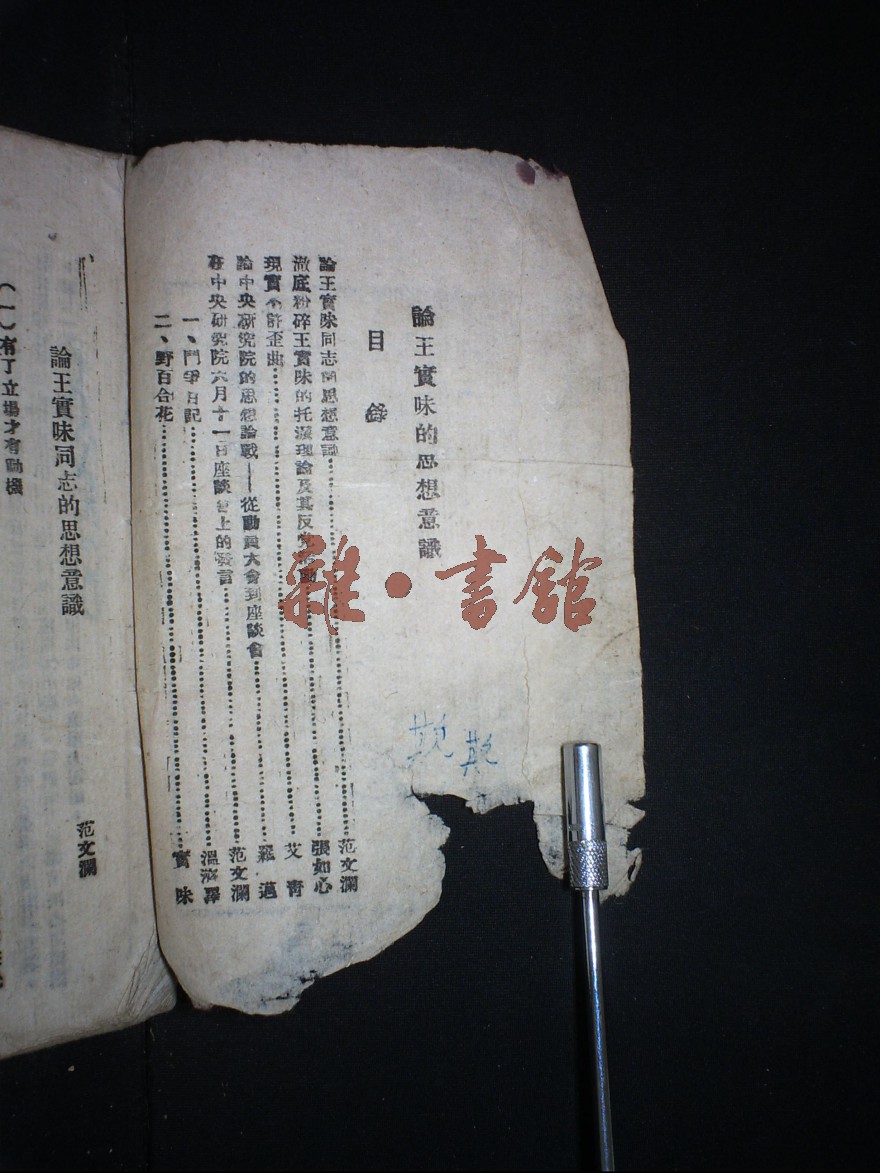 論王實味的思想意識
目錄
論王實味同志的思想意識……范文瀾
澈底粉碎王實味的托派理論及其反党活動……張如心
現實不許歪曲……艾青
論中央研究院的思想論戰——從動員大會到座談會……羅邁
在中央研究院六月十一日座談會上的發言……范文瀾
一、鬥爭日記……溫濟澤
二、野百合花……實味
雜·書館
論王實味同志的思想意識
范文瀾
(一)有了立場才有動機